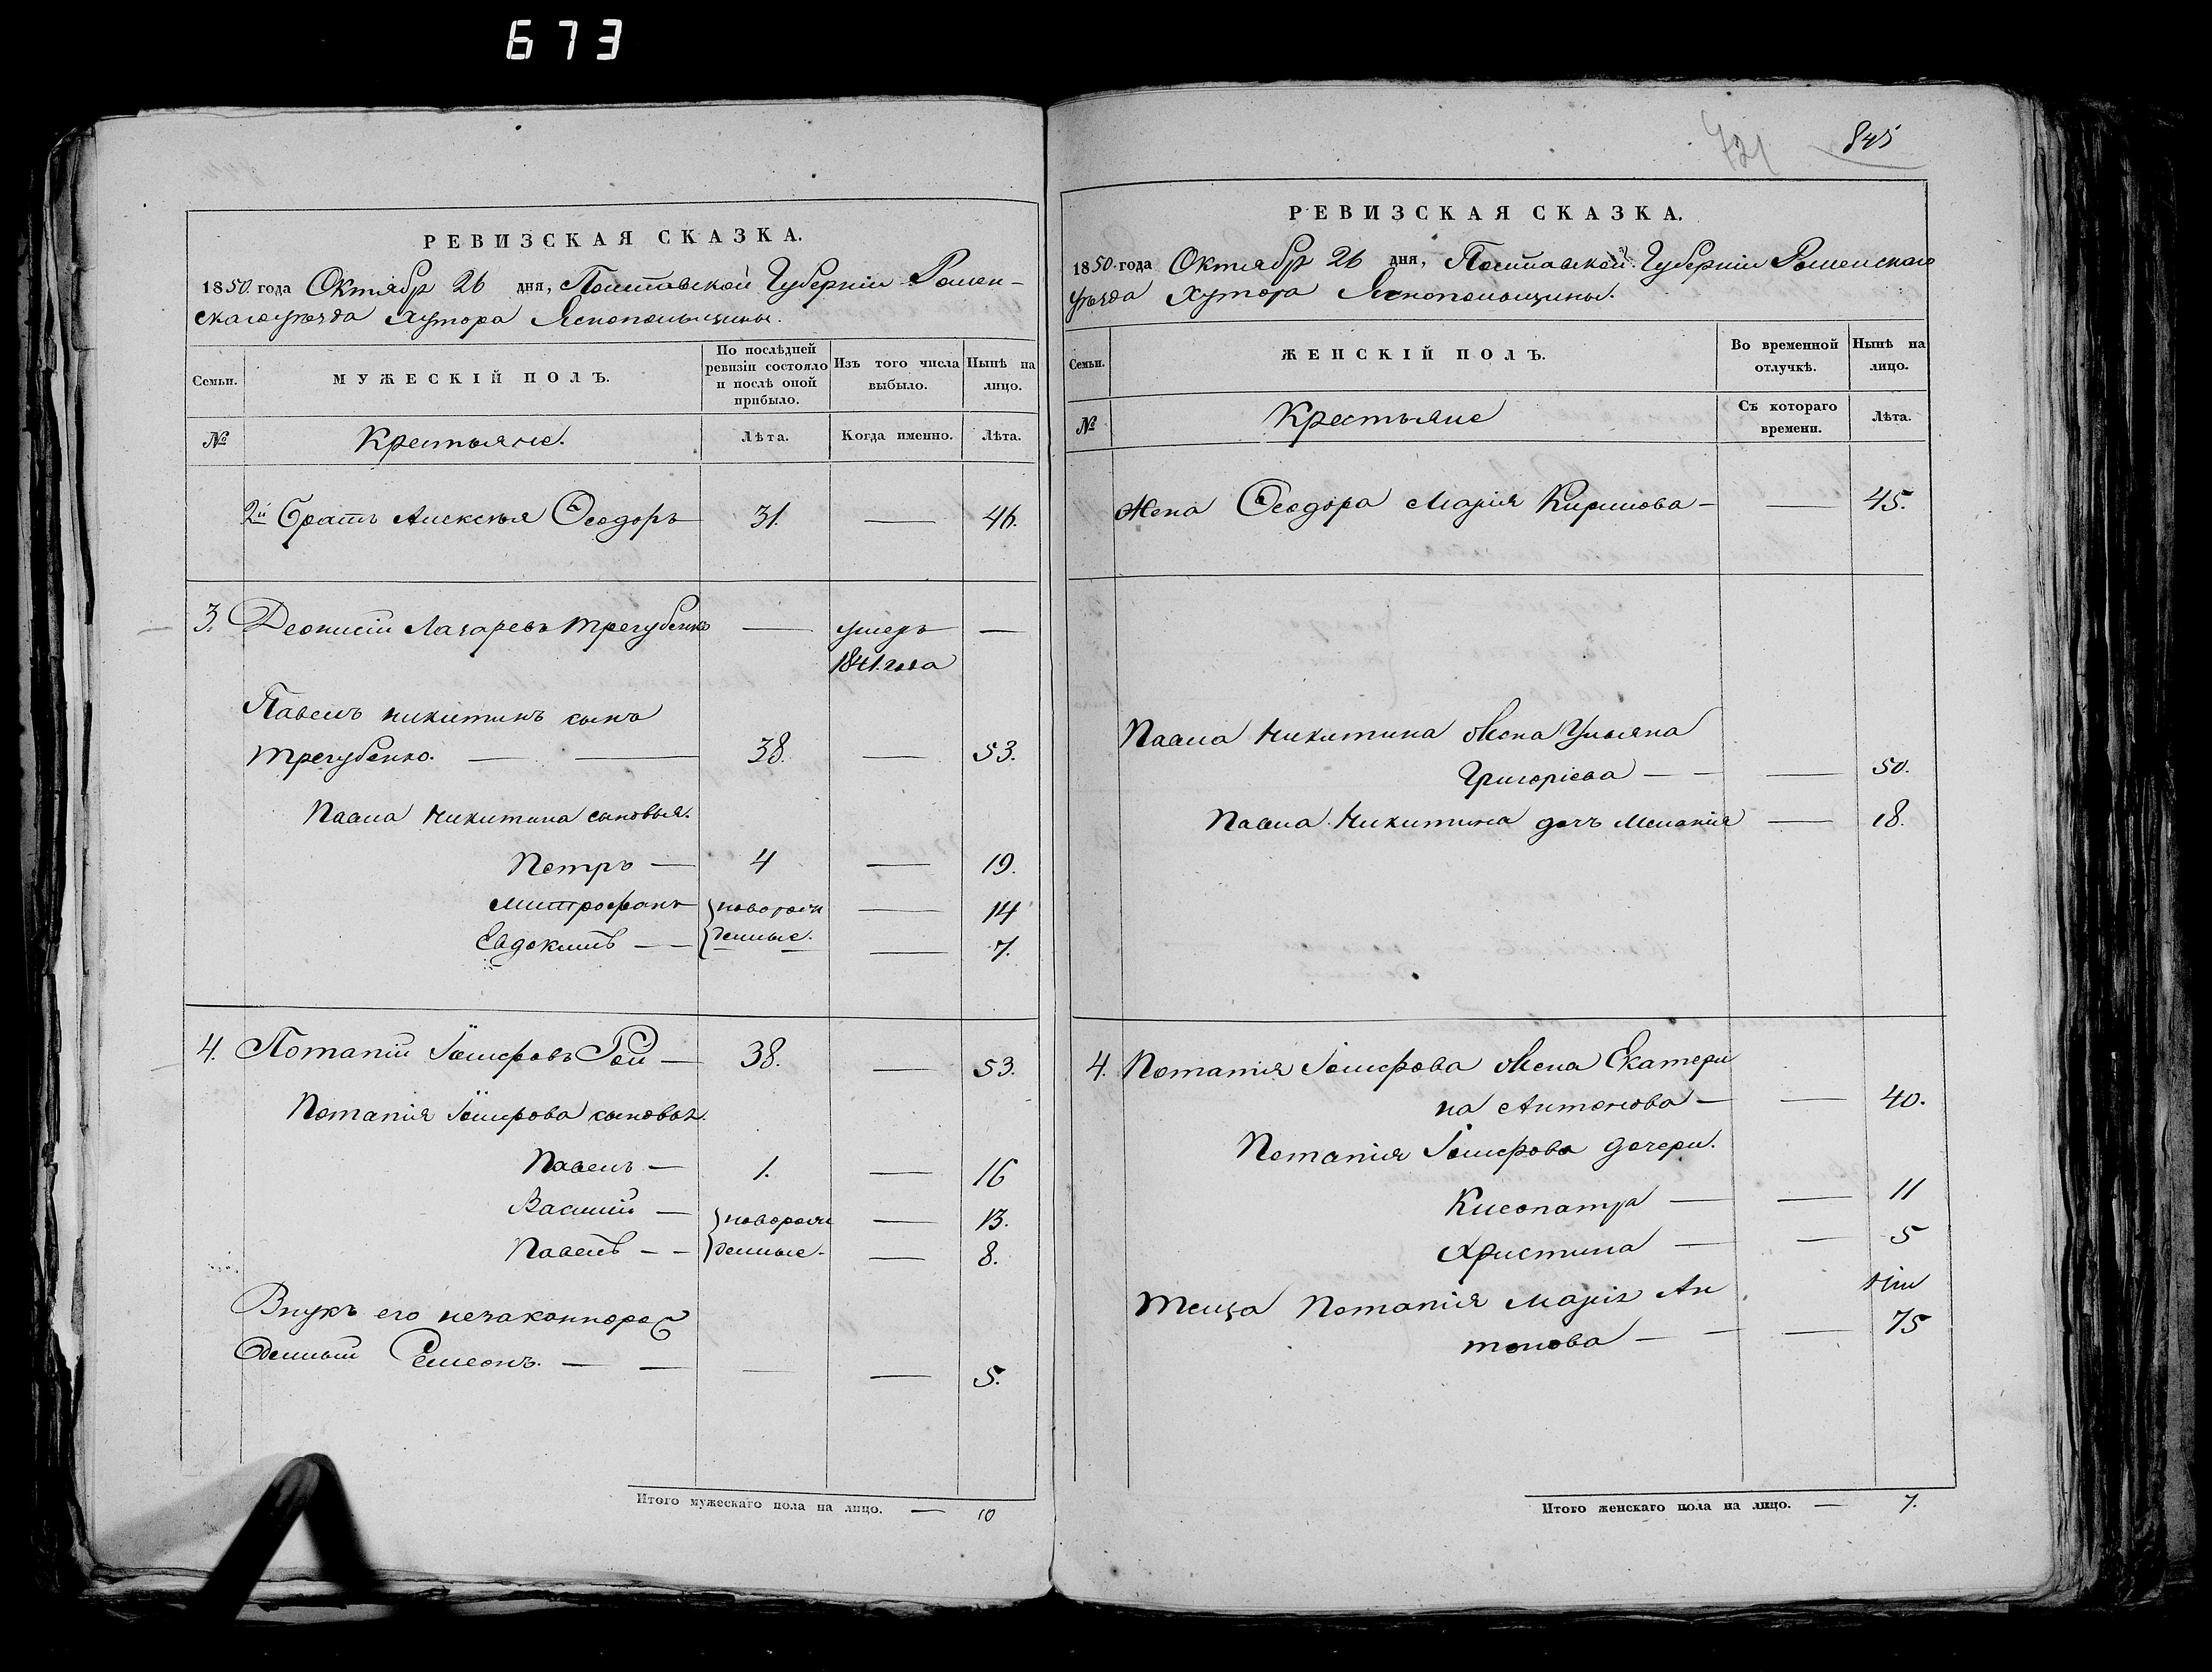 673
РЕВИЗСКАЯ СКАЗКА.
1850 года Октября 26 дня, Полтавской Губерніи Ромен-
скаго уѣзда Хутора Яснопольщины.
Семьи. МУЖЕСКІЙ ПОЛЪ. По послѣдней ревизіи состояло и послѣ оной прибыло. Изъ того числа выбыло. Нынѣ на лицо.
№ Крестьяне. Лѣта. Когда именно. Лѣта.
2й Братъ Алексѣя Ѳеодоръ 31. — 46.
3. Деонисій Лазаревъ Трегубенко — умеръ —
1841. года
Павелъ Никитинъ сынъ
Трегубенко. — — 38. — 53.
Павла Никитина сыновья.
Петръ — 4 — 19.
Митрофанъ новорож — 14
Евдокимъ — денные. — 7.
4. Потапій Іосифовъ Гой — 38. — 53.
Потапія Іосифова сыновья.
Павелъ — 1. — 16
Василій — новорож — 13.
Павелъ — — денные. — 8.
Внукъ его незаконнорож
денный Семеонъ. — — — — 5.
Итого мужескаго пола на лицо. — 10
721 845
РЕВИЗСКАЯ СКАЗКА.
1850 года Октября 26 дня, Полтавской Губерніи Роменскаго
уѣзда Хутора Яснопольщины.
Семьи. ЖЕНСКІЙ ПОЛЪ. Во временной отлучкѣ. Нынѣ на лицо.
№ Крестьяне Съ котораго времени. Лѣта.
Жена Ѳеодора Марія Кирилова — — 45.
Павла Никитина Жена Ульяна
Григоріева — — — 50.
Павла Никитина дочь Меланія — 18.
4. Потапія Іосифова Жена Екатери
на Антонова — — 40.
Потапія Іосифова дочери.
Клеопатра — — 11
Христина — — 5
Теща Потапія Марія Ан
тонова — — — 75
Итого женскаго пола на лицо. — 7.